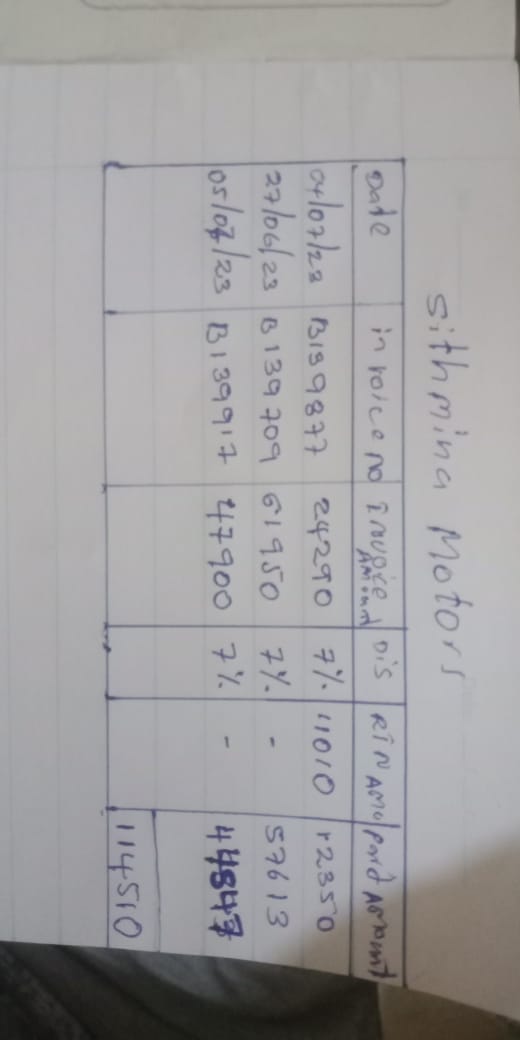 Sithmina Motors
Date invoice no invoice Amount Dis RTN AMO paid Amount
04/07/23 B139877 24290 7% 11010 12350
27/06/23 B139709 61950 7% - 57613
05/07/23 B139917 47900 7% - 44547
114510